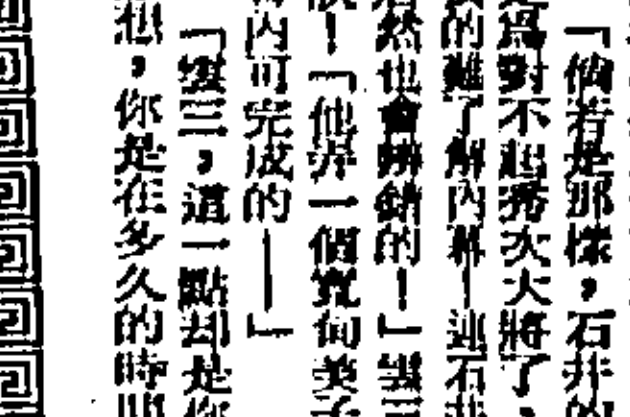 「倘若是那樣,石井的
爲對不起秀次大將了,
的難了解內幕!連石井
然也會辨錯的!」雲三
!「他弄一個美子
內可完成的——」
「雲三,這一點却是你
想,你是在多久的時間